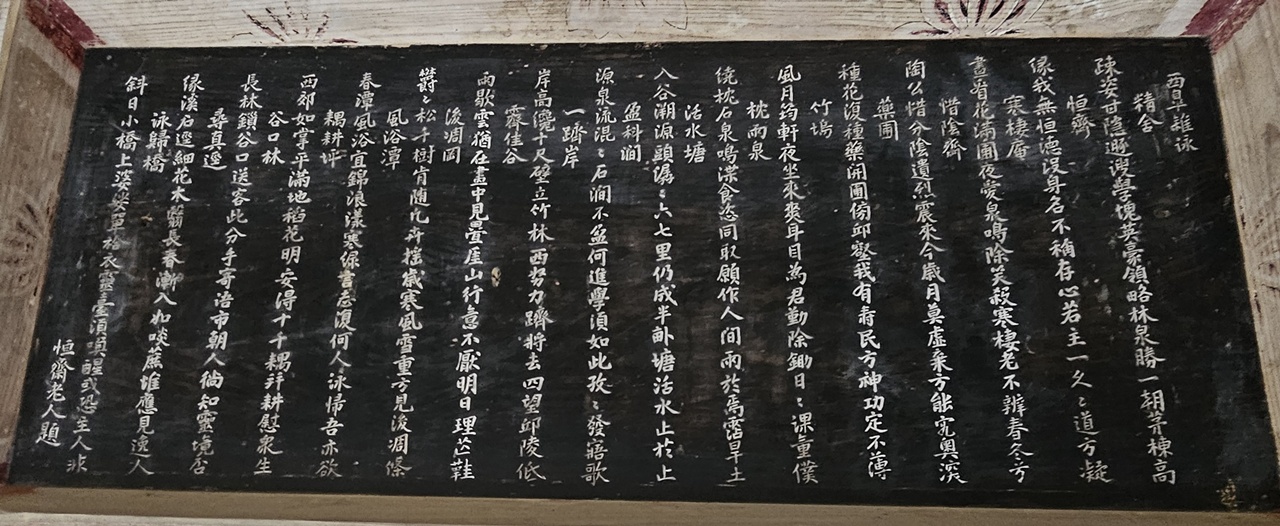 西皐雜詠
精舍
疎姿甘隱遯謾學愧英豪領略林泉勝一朝茅棟高
恒齋
緣我無恒德沒身名不稱存心若主一久久道方凝
寒棲庵
晝看花滿圃夜愛泉鳴除笑殺寒棲老不辨春冬兮
惜陰齋
陶公惜分陰遺烈震來今歲月莫虛棄方能究奧深
藥圃
種花復種藥開圃傍邱壑我有壽民方神功定不薄
竹塢
風月筠軒夜坐來爽耳目爲君勤除鋤日日課童僕
枕雨泉
繞枕石泉鳴渫食恣同取願作人間雨於焉霑旱土
活水塘
入谷溯源頭潺潺六七里仍成半畝塘活水止於止
盈科澗
源泉流混混石澗不盈何進學須如此孜孜發寤歌
一躋岸
岸高纔十尺壁立竹林西努力躋將去四望邱陵低
霽佳谷
雨歇雲猶在畫中見疊崖山行意不厭明日理芒鞋
後凋岡
欝欝松千樹肯隨凡卉擋歲寒風雪重方見後凋條
風浴潭
春潭風浴宜錦浪漾寒漪言志復何人泳歸吾亦欲
耦耕坪
西郊如掌平滿地稻花明安得千千耦幷耕慰衆生
谷口林
長林鎖谷口送客此分手寄語市朝人倘知靈境否
尋眞逕
緣溪石逕細花木霸長春漸入如啖蔗堆應見遠人
詠歸橋
斜日小橋上婆娑單袷衣靈臺須喚醒或恐主人非
恒齋老人題